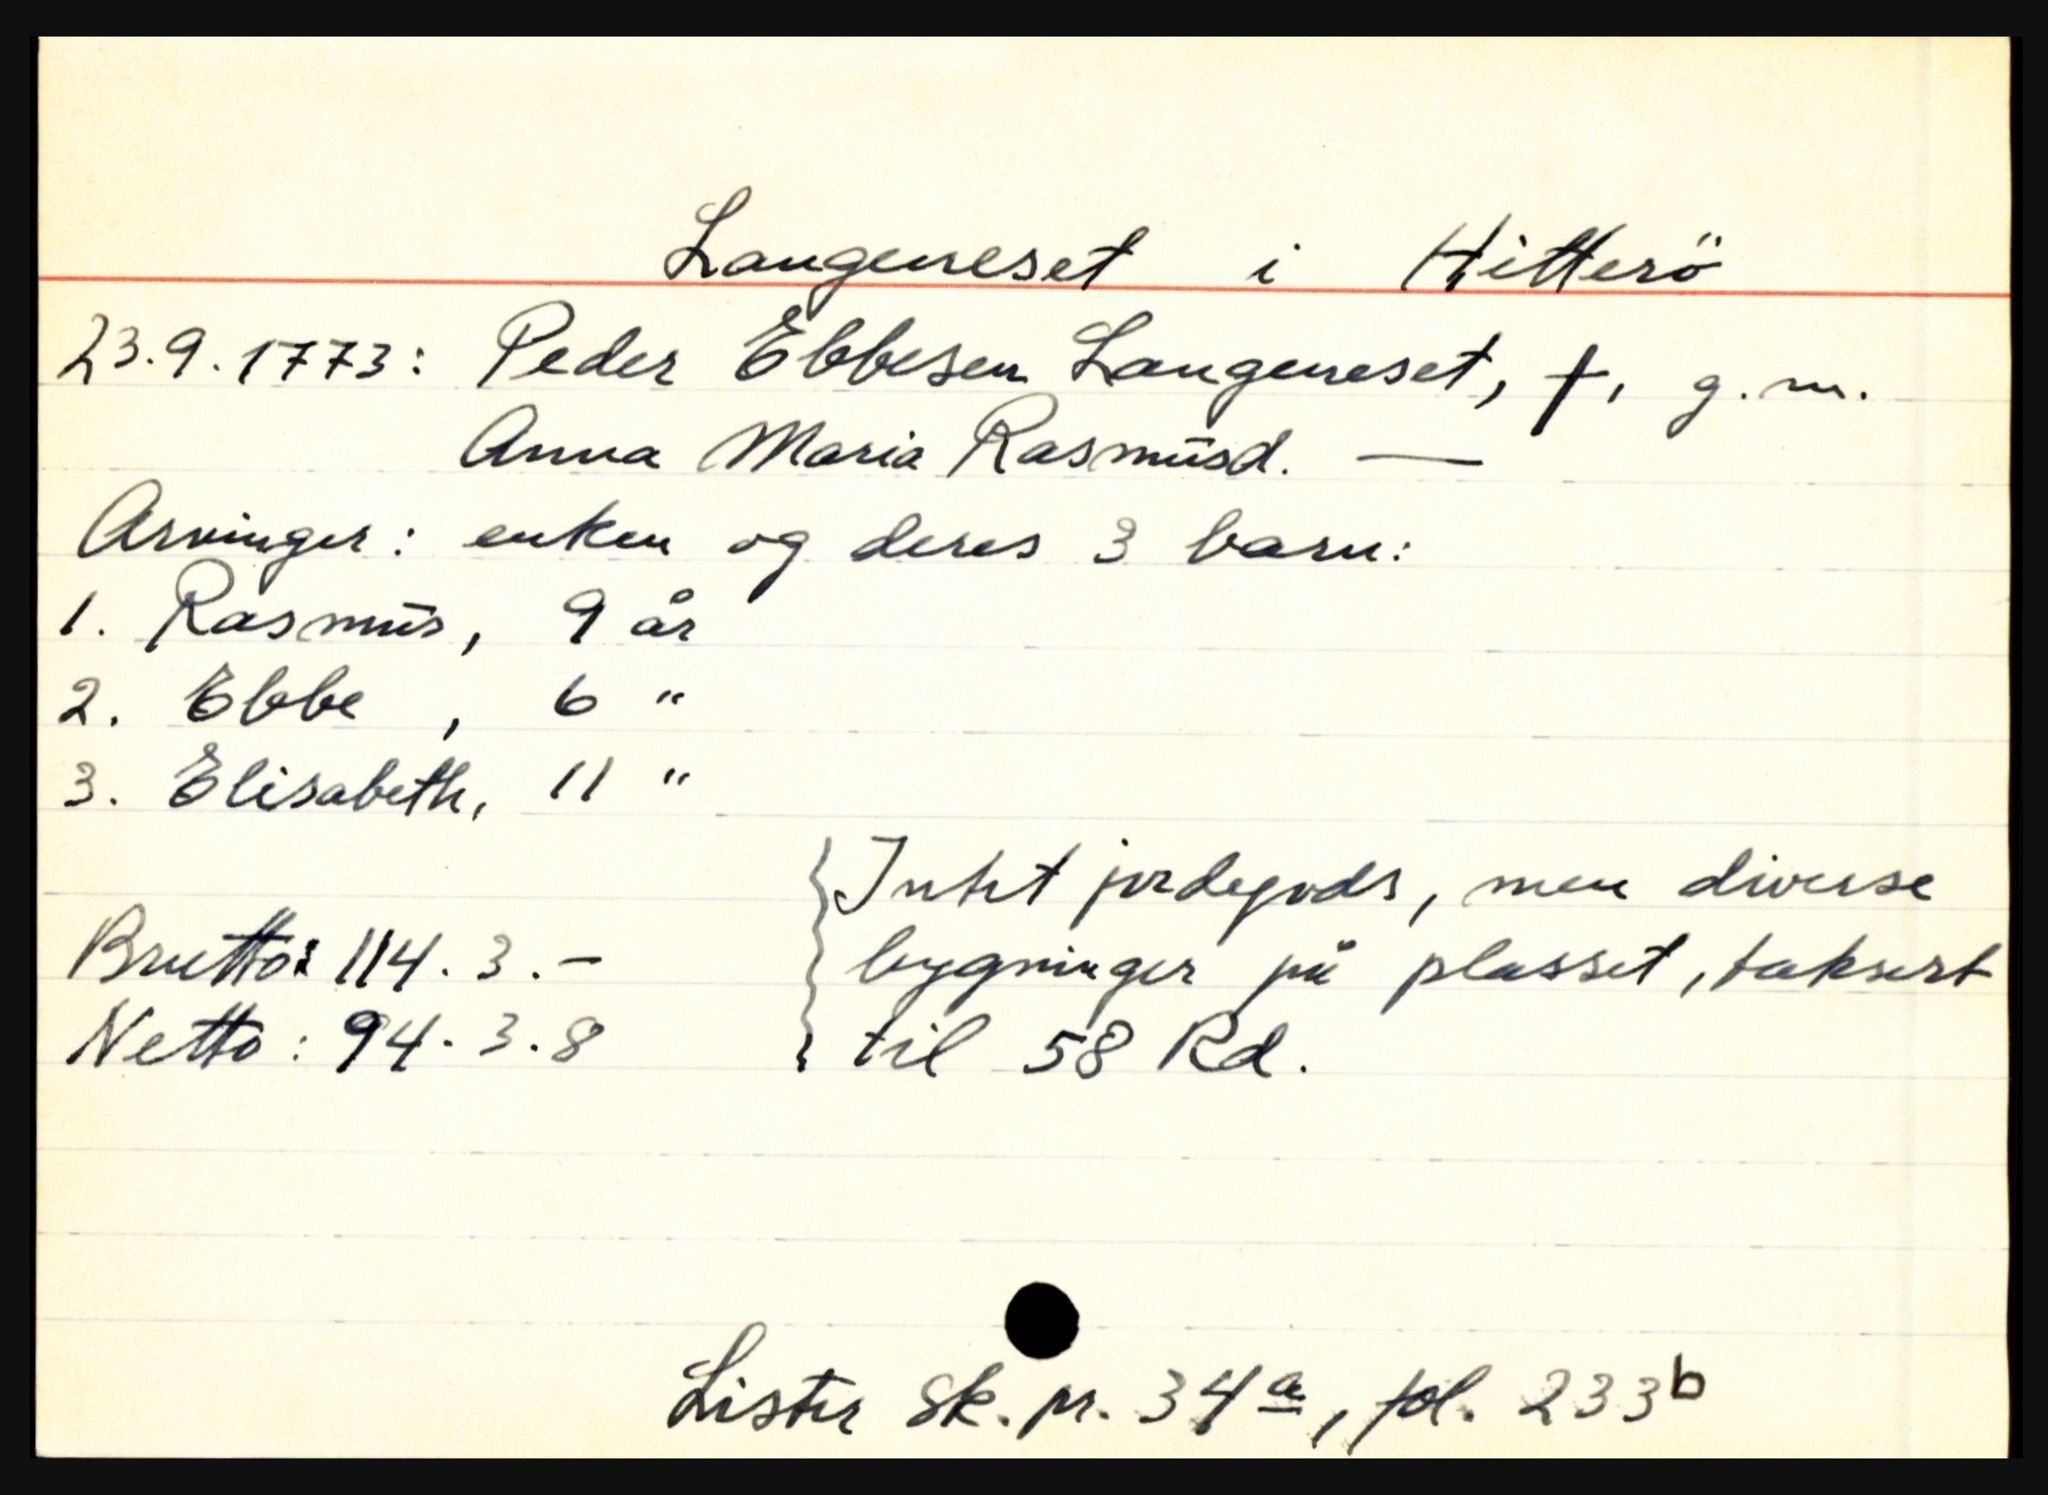 Langeneset i Hitterö
23.9.1773: Peder Ebbesen Langeneset, †, g.m.
Anna Maria Rasmusd. —
Arvinger: enken og deres 3 barn:
1. Rasmus, 9 år
2. Ebbe , 6 "
3. Elisabeth, 11 "
Intet jordegods, men diverse
Brutto: 114. 3. - bygninger på plasset, taksert
Netto: 94. 3. 8 til 58 Rd.
Lister sk. pr. 34a, fol. 233b